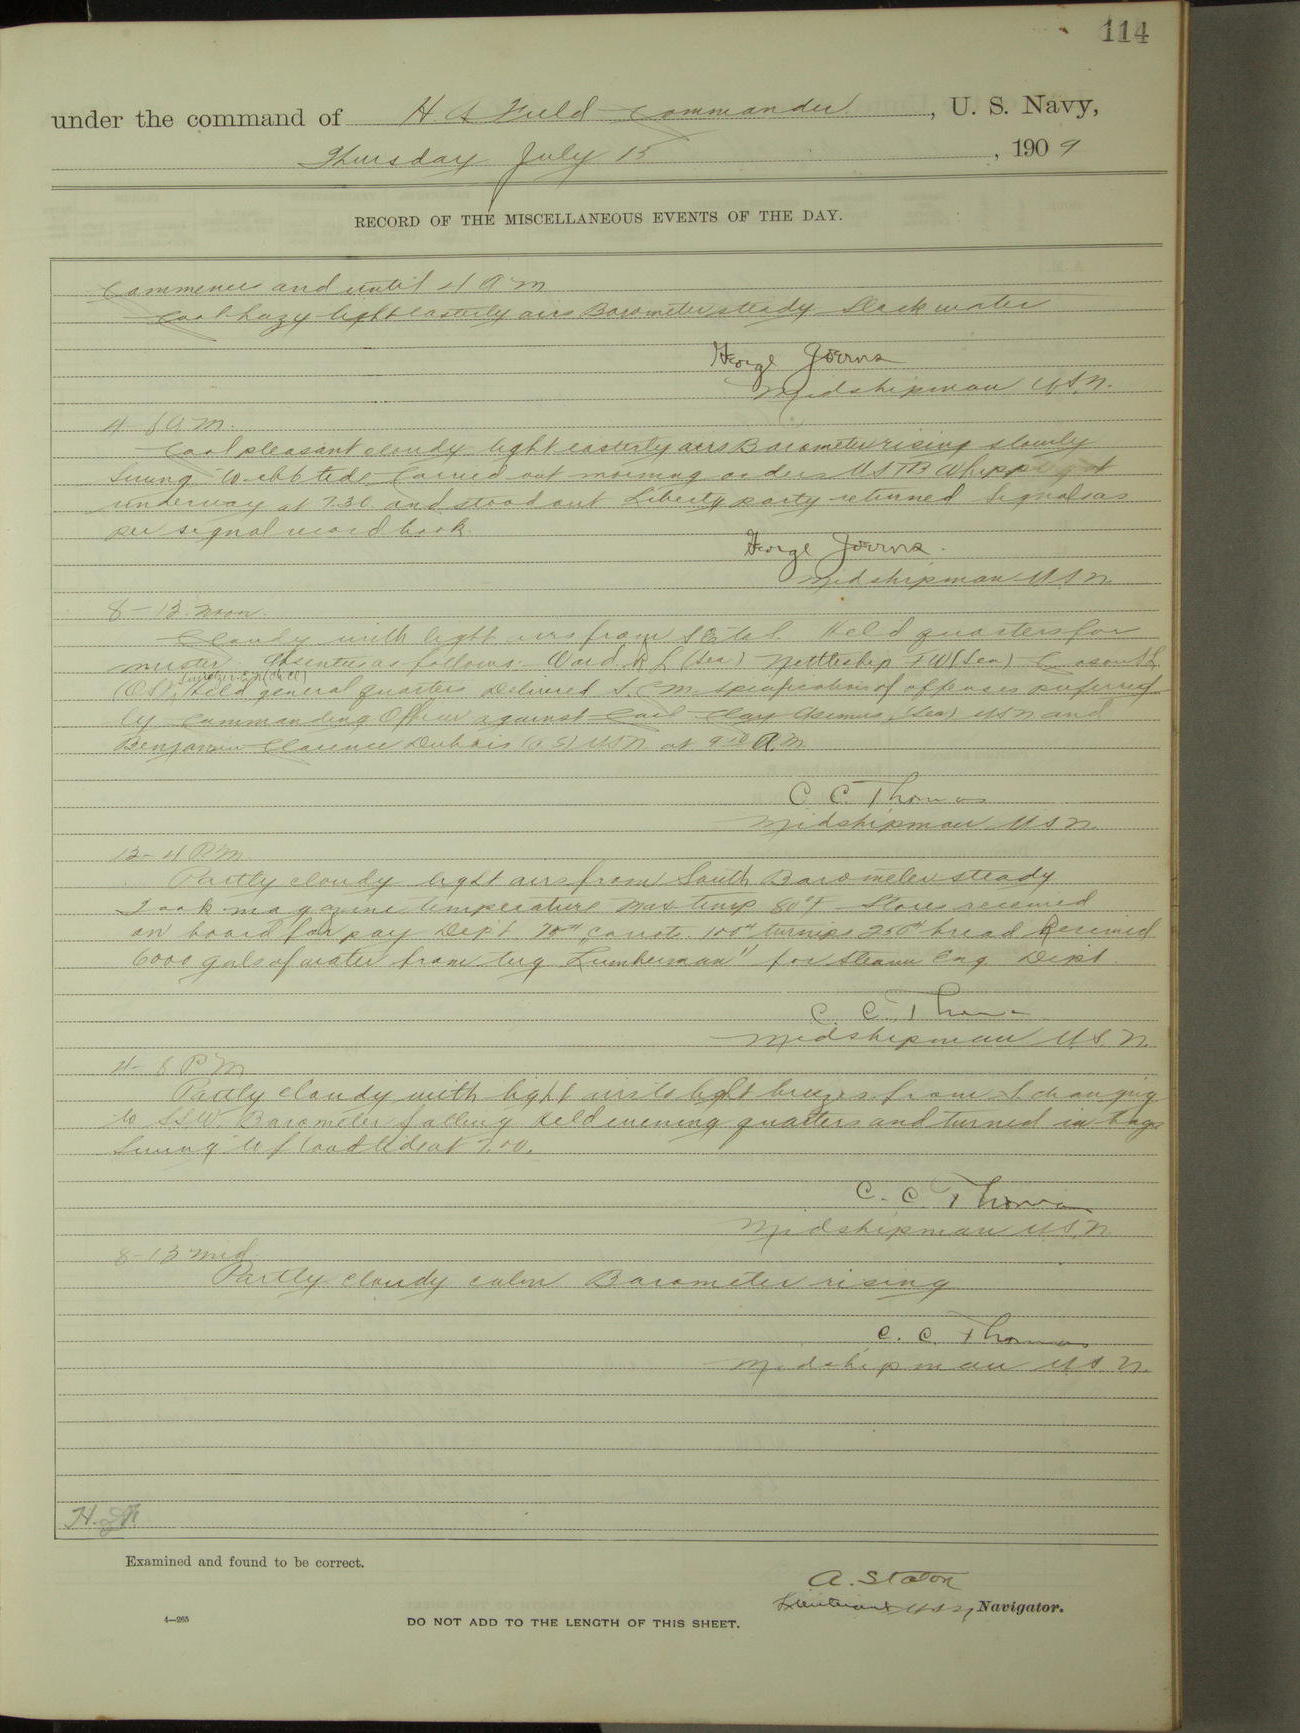 114
under the command of H A Field Commander, U. S. Navy,
Thursday July 15, 1909
RECORD OF THE MISCELLANEOUS EVENTS OF THE DAY.
Commences and until 4 A M
Cool hazy light easterly airs Barometer steady Slack water
George Joerns
Midshipman U.S.N.
4-8 A.M.
Cool pleasant cloudy light easterly airs Barometer rising slowly
Swung to ebb tide Carried out morning orders USTB Whipple got
underway at 7.30 and stood out Liberty party returned Signals as
per signal record book.
George Joerns.
Midshipman U.S.N.
8-12 noon.
Cloudy with light airs from S E'td. Held quarters for
muster. Absentees as follows:- Ward R L (Sea) Nettleship F W (Sea)
(OS), Held general quarters Delivered S.C.M. specifications of offenses preferred
by Commanding Officer against Clay (Sea) USN and
Benjamin Clarence Dubois (O.S) USN at 9 30 A.M.
C. C. Thomas
Midshipman U.S.N.
12-4 P M.
Partly cloudy light airs from South Barometer steady
Took magazine temperature max temp 80°F Stores received
on board for pay Dept carrots. 100# turnips 250# bread Received
6000 gals of water from tug Lumberman" for Steam Eng Dept.
C. C. Thomas
Midshipman U.S.N.
4-8 P M
Partly cloudy with light airs to light breezes from S changing
to SSW. Barometer falling Held evening quarters and turned in bags
Swung to flood tide at 7.00.
C. C. Thomas
Midshipman U.S.N.
8-12 mid.
Partly cloudy calm Barometer rising
C. C. Thomas
Midshipman U.S.N.
Examined and found to be correct.
A. Staton
Lieutenant U.S.N, Navigator.
4—265
DO NOT ADD TO THE LENGTH OF THIS SHEET.